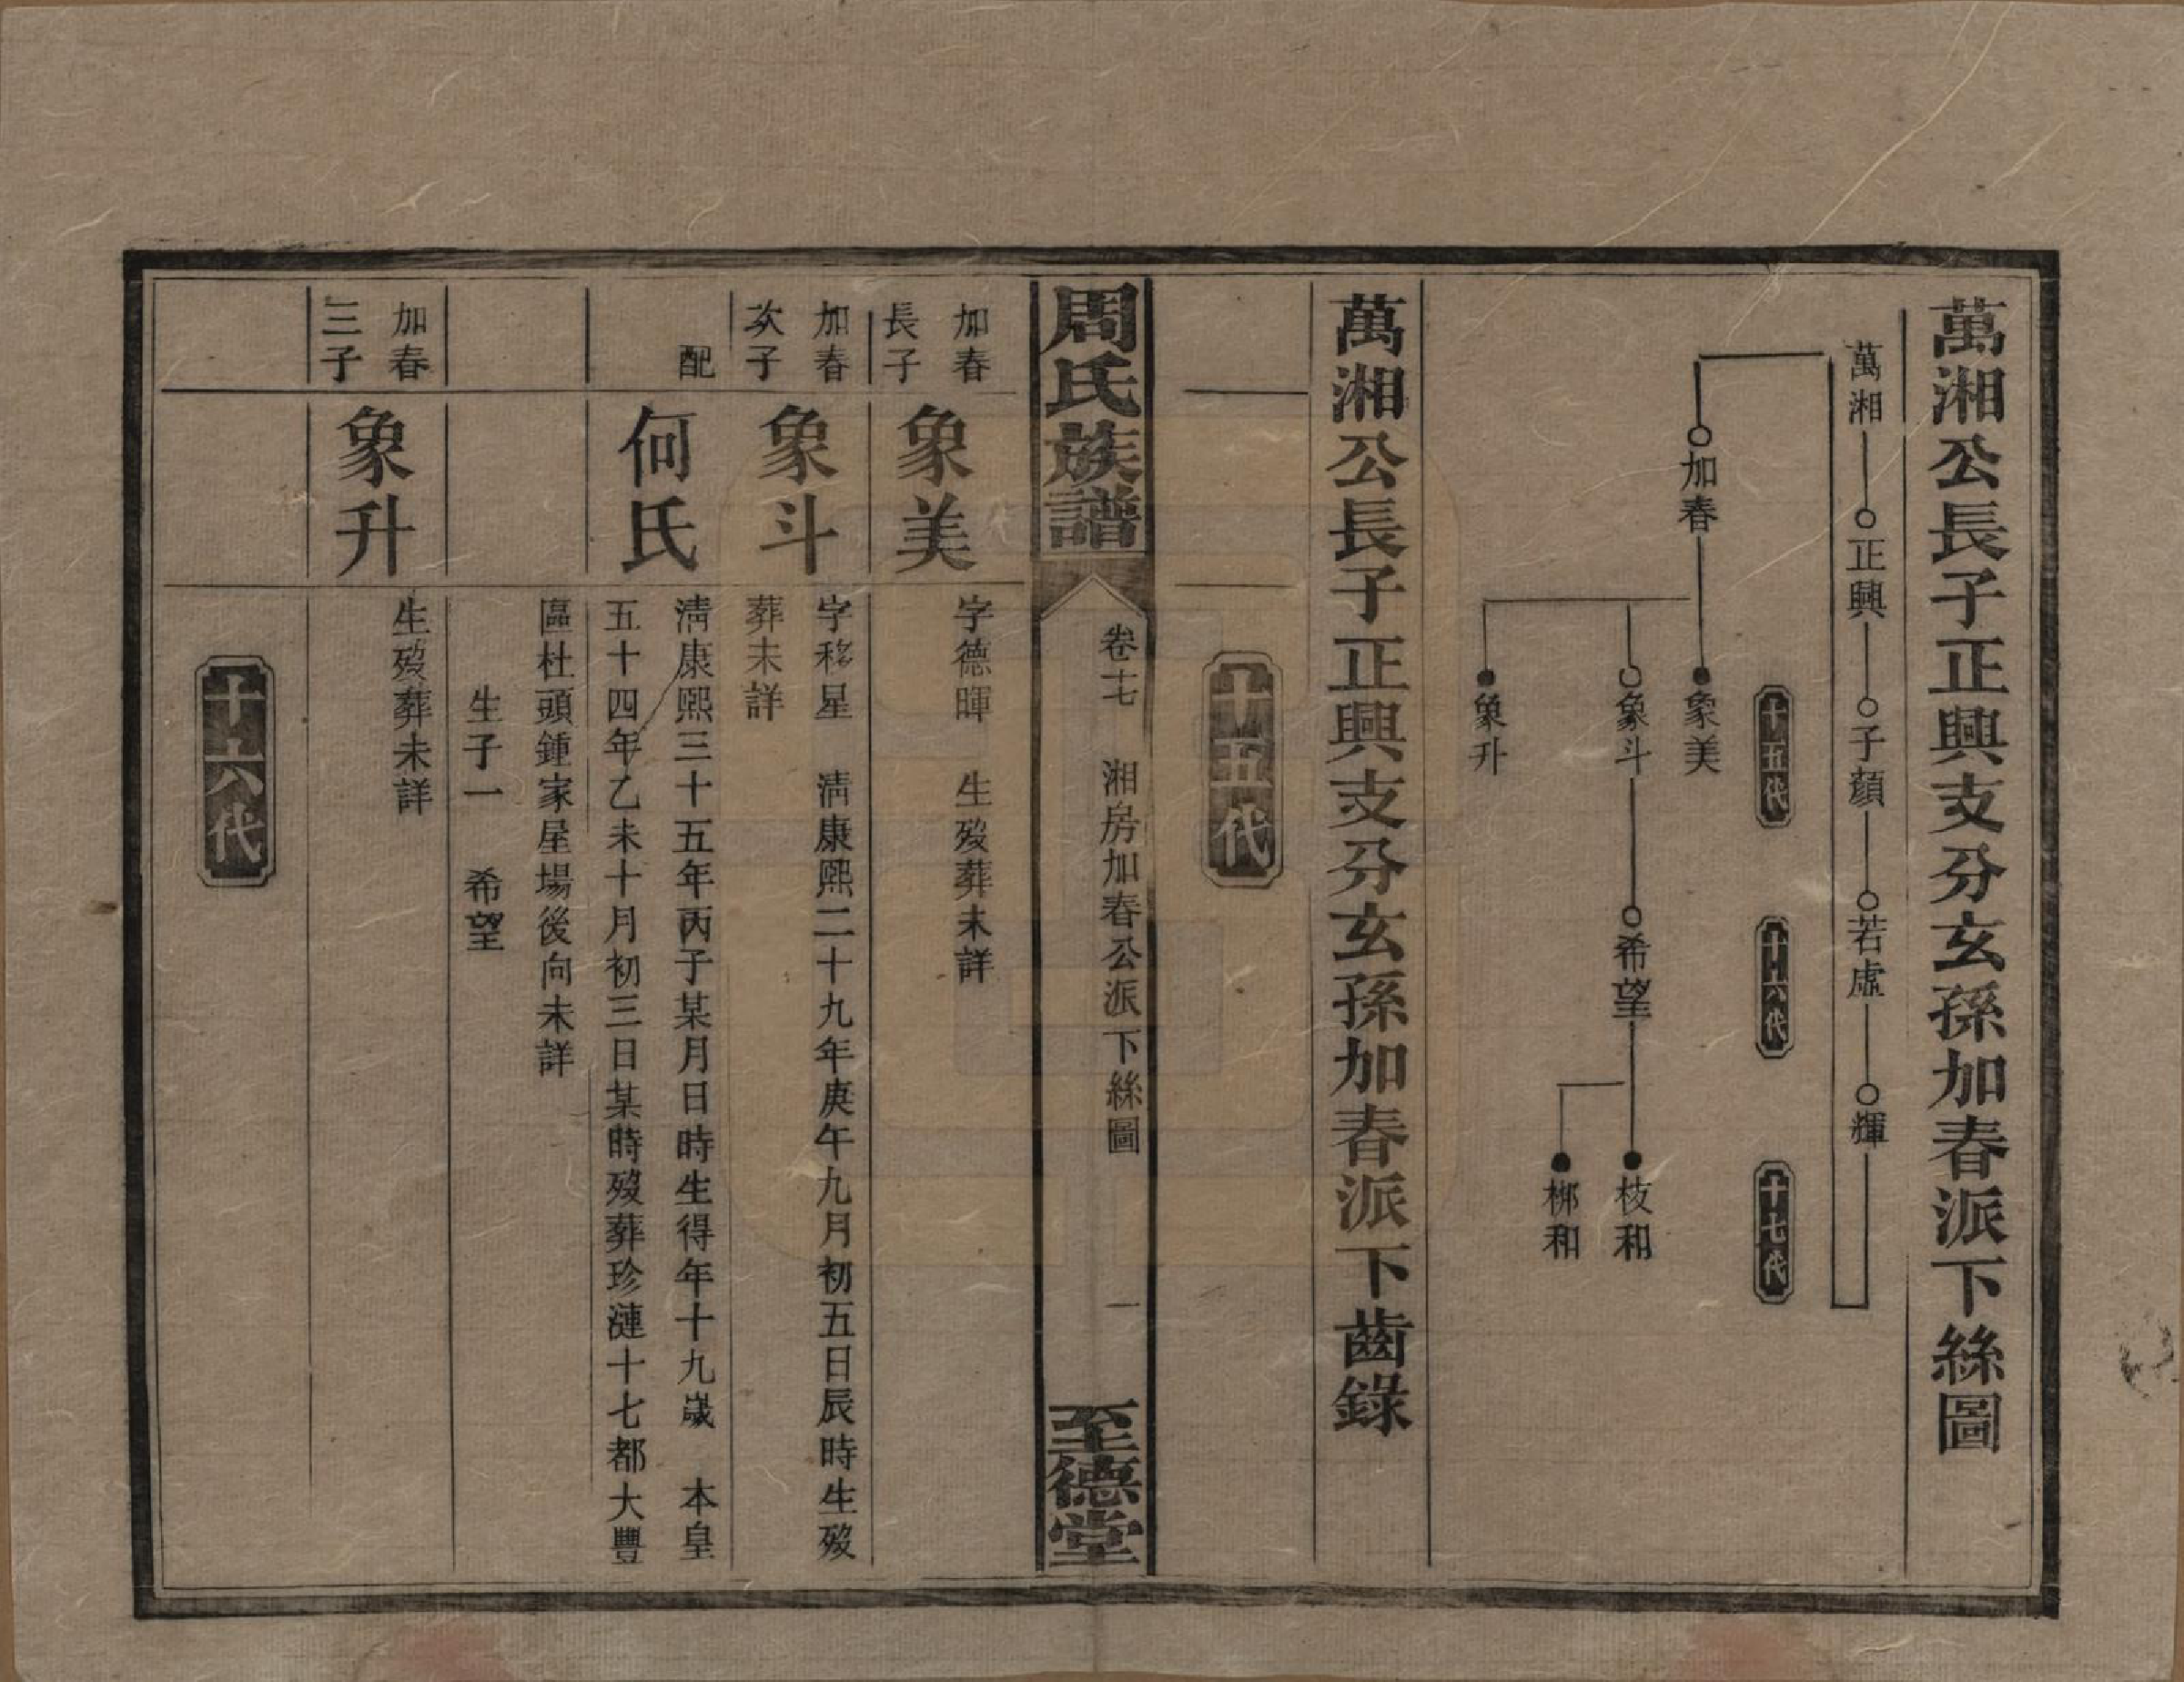 萬湘公長子正興支分玄孫加春派下絲圖
萬湘 正興 子顏 若虛 輝
十五代 十六代 十七代
加春 象美
象斗 希望 枝和
梛和
象升
萬湘公長子正興支分玄孫加春派下齒錄
十五代
周氏族譜 卷十七 湘房加春公派下絲圖 一 至德堂
加春
長子
象美
字德暉 生歿葬未詳
加春
次子
象斗
字移星 清康熙二十九年庚午九月初五日辰時生歿
葬未詳
配
何氏
清康熙三十五年丙子某月日時生得年十九歲 本皇
五十四年乙未十月初三日某時歿葬珍漣十七都大豐
區杜頭鍾家屋場後向未詳
生子一 希望
加春
三子
象升
生歿葬未詳
十六代